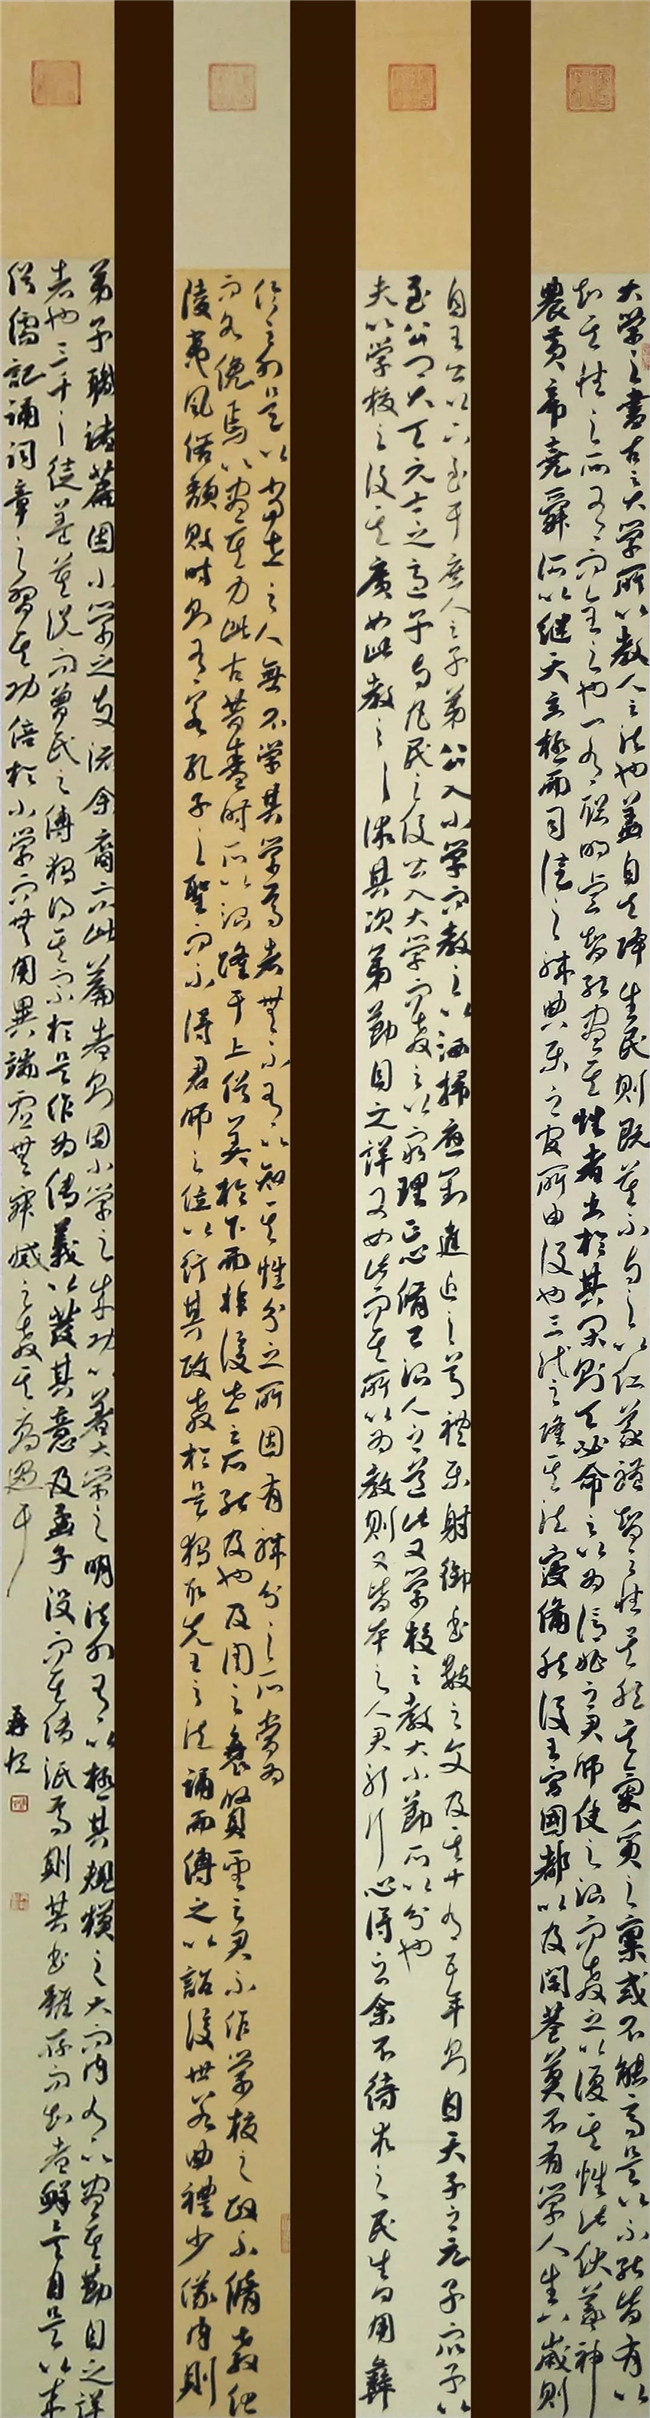 大学之書古之大学所以教人之法也蓋自天降生民則既莫不与之以仁義禮智之性矣然其氣質之稟或不能齊是以不能皆有以
知其性之所有而全之也一有聰明睿智能盡其性者出於其間則天必命之以為億兆之君師使之治而教之以復其性此伏羲神
農黄帝堯舜所以継天立極而司徒之職典樂之官所由設也三代之隆其法寖備然後王宮國都以及閭巷莫不有学人生八歲則
自王公以下至于庶人之子弟皆入小学而教之以洒掃應對進退之節禮樂射御書數之文及其十有五年則自天子之元子衆子以
至公卿大夫元士之適子与凡民之俊皆入大学而教之以窮理正心脩己治人之道此又学校之教大小節所以分也
夫以学校之設其廣如此教之之術其次第節目之詳又如此而其所以為教則又皆本之人君躬行心得之余不待求之民生日用彝
倫之外是以當世之人無不学其学焉者無不有以知其性分之所固有職分之所當為
而各俛焉以盡其力此古昔盛時所以治隆于上俗美於下而非後世之所能及也及周之衰賢聖之君不作学校之政不脩教化
陵夷風俗頹敗時則有若孔子之聖而不得君師之位以行其政教於是獨取先王之法誦而傳之以詔後世若曲禮少儀内則
弟子職諸篇固小学之支流余裔而此篇者則因小学之成功以著大学之明法外有以極其規模之大而内有以盡其節目之詳
者也三千之徒蓋莫説而曾氏之傳獨得其宗於是作為傳義以發其意及孟子没而其傳泯焉則其書雖存而知者鮮矣自是以来
俗儒記誦詞章之習其功倍於小学而無用異端虚無寂滅之教其高過于